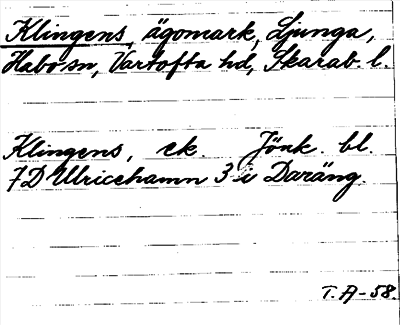 Klingens, ägomark, Ljunga,
Habo sn, Vartofta hd, Skarab. l.
Klingens, ek. Jönk. bl.
7D Ulricehamn 3 i Daräng.
T. A-58.